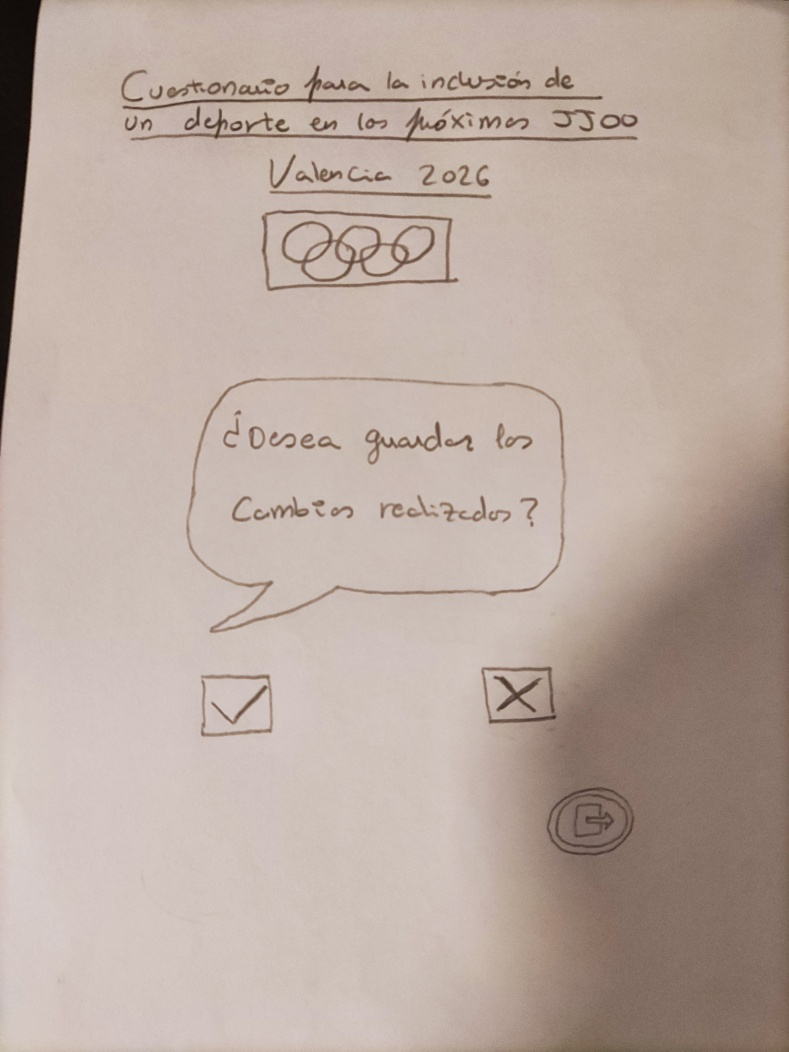 Cuestionario para la inclusión de
un deporte en los próximos JJOO
Valencia 2026
¿Desea guardar los
Cambios realizados?